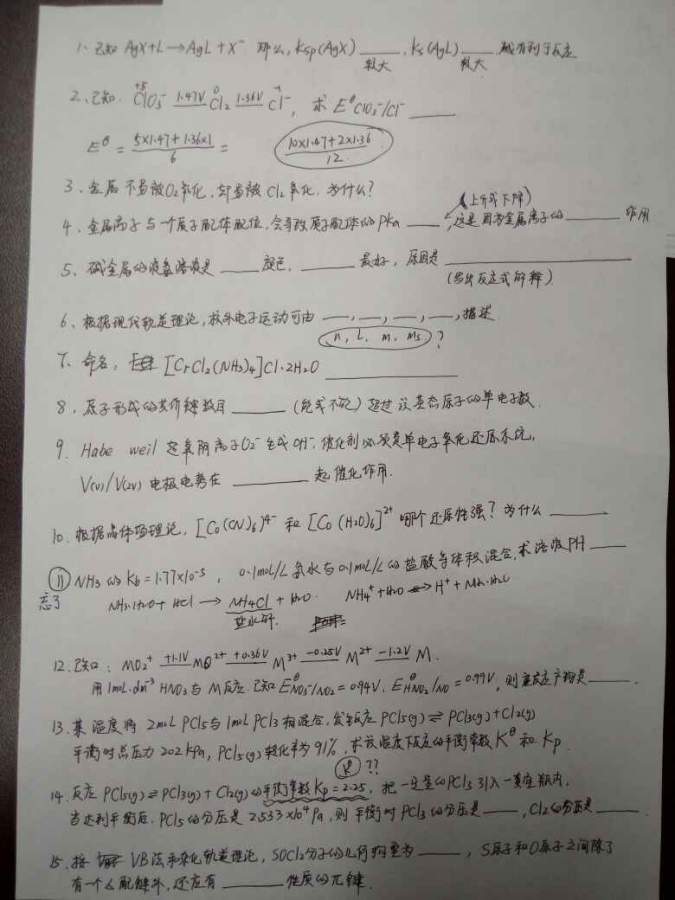 1. 已知 AgX+L→AgL+X⁻ 那么, Ksp(AgX) ____ , Ks(AgL) ____ 越有利于反应
较大 较大
2、已知. ClO₃⁻ 1.47V Cl₂ 1.36V Cl⁻, 求 E^θ ClO₃⁻/Cl⁻ ____
+5 0 -1
E^θ = (5×1.47+1.36×1)/6 = (10×1.47+2×1.36)/12
3、金属不易被O₂氧化, 却易被Cl₂氧化. 为什么?
(上升或下降)
4、金属离子与一个质子配体配位, 会导致质子配体的 pKa ____, 这是因为金属离子的 ____ 作用
5、碱金属的液氨溶液是 ____ 颜色. ____ 最好, 原因是 ____
(写出反应式解释)
6、根据现代轨道理论, 核外电子运动可由 __, __, __, __, 描述
n, L, m, ms ?
7. 命名, [CrCl₂(NH₃)₄]Cl·2H₂O ____
8、原子形成的共价键数目 ____ (能或不能) 超过该基态原子的单电子数.
9、Habe weil 是氧阴离子O₂⁻生成OH⁻. 催化剂必须是单电子氧化还原系统,
电极电势在 ____ 起催化作用.
10、根据晶体场理论, [Co(CN)₆]⁴⁻ 和 [Co(H₂O)₆]²⁺ 哪个还原性强? 为什么 ____
11 NH₃的Kb=1.77×10⁻⁵, 0.1mol/L 氨水与0.1mol/L的盐酸等体积混合, 求溶液PH ____
忘了 NH₃·H₂O + HCl → NH₄Cl + H₂O. NH₄⁺+H₂O ⇌ H⁺+NH₃·H₂O
盐水解.
12、已知: MO₂⁺ +1.1V MO²⁺ +0.36V M³⁺ -0.25V M²⁺ -1.2V M.
用1mol·dm⁻³ HNO₃与M反应. 已知 E^θ NO₃⁻/NO₂=0.94V. E^θ HNO₂/NO=0.99V, 则重反应产物是 ____.
13、某温度将 2mol PCl₅与1mol PCl₃相混合, 发生反应 PCl₅(g) ⇌ PCl₃(g)+Cl₂(g)
平衡时总压力 202 kPa, PCl₅(g) 转化率为91%, 求该温度下反应的平衡常数K^θ和Kp
??
14、反应 PCl₅(g) ⇌ PCl₃(g)+Cl₂(g)的平衡常数Kp=2.25, 把一定量的PCl₅引入一真空瓶内,
当达到平衡后. PCl₅的分压是 2.533×10⁴Pa, 则平衡时PCl₃的分压是 ____, Cl₂的分压是 ____.
15、按 VB法和杂化轨道理论, SOCl₂分子的几何构型为 ____, S原子和O原子之间除了
有一个σ配键外, 还应有 ____ 性质的π键.